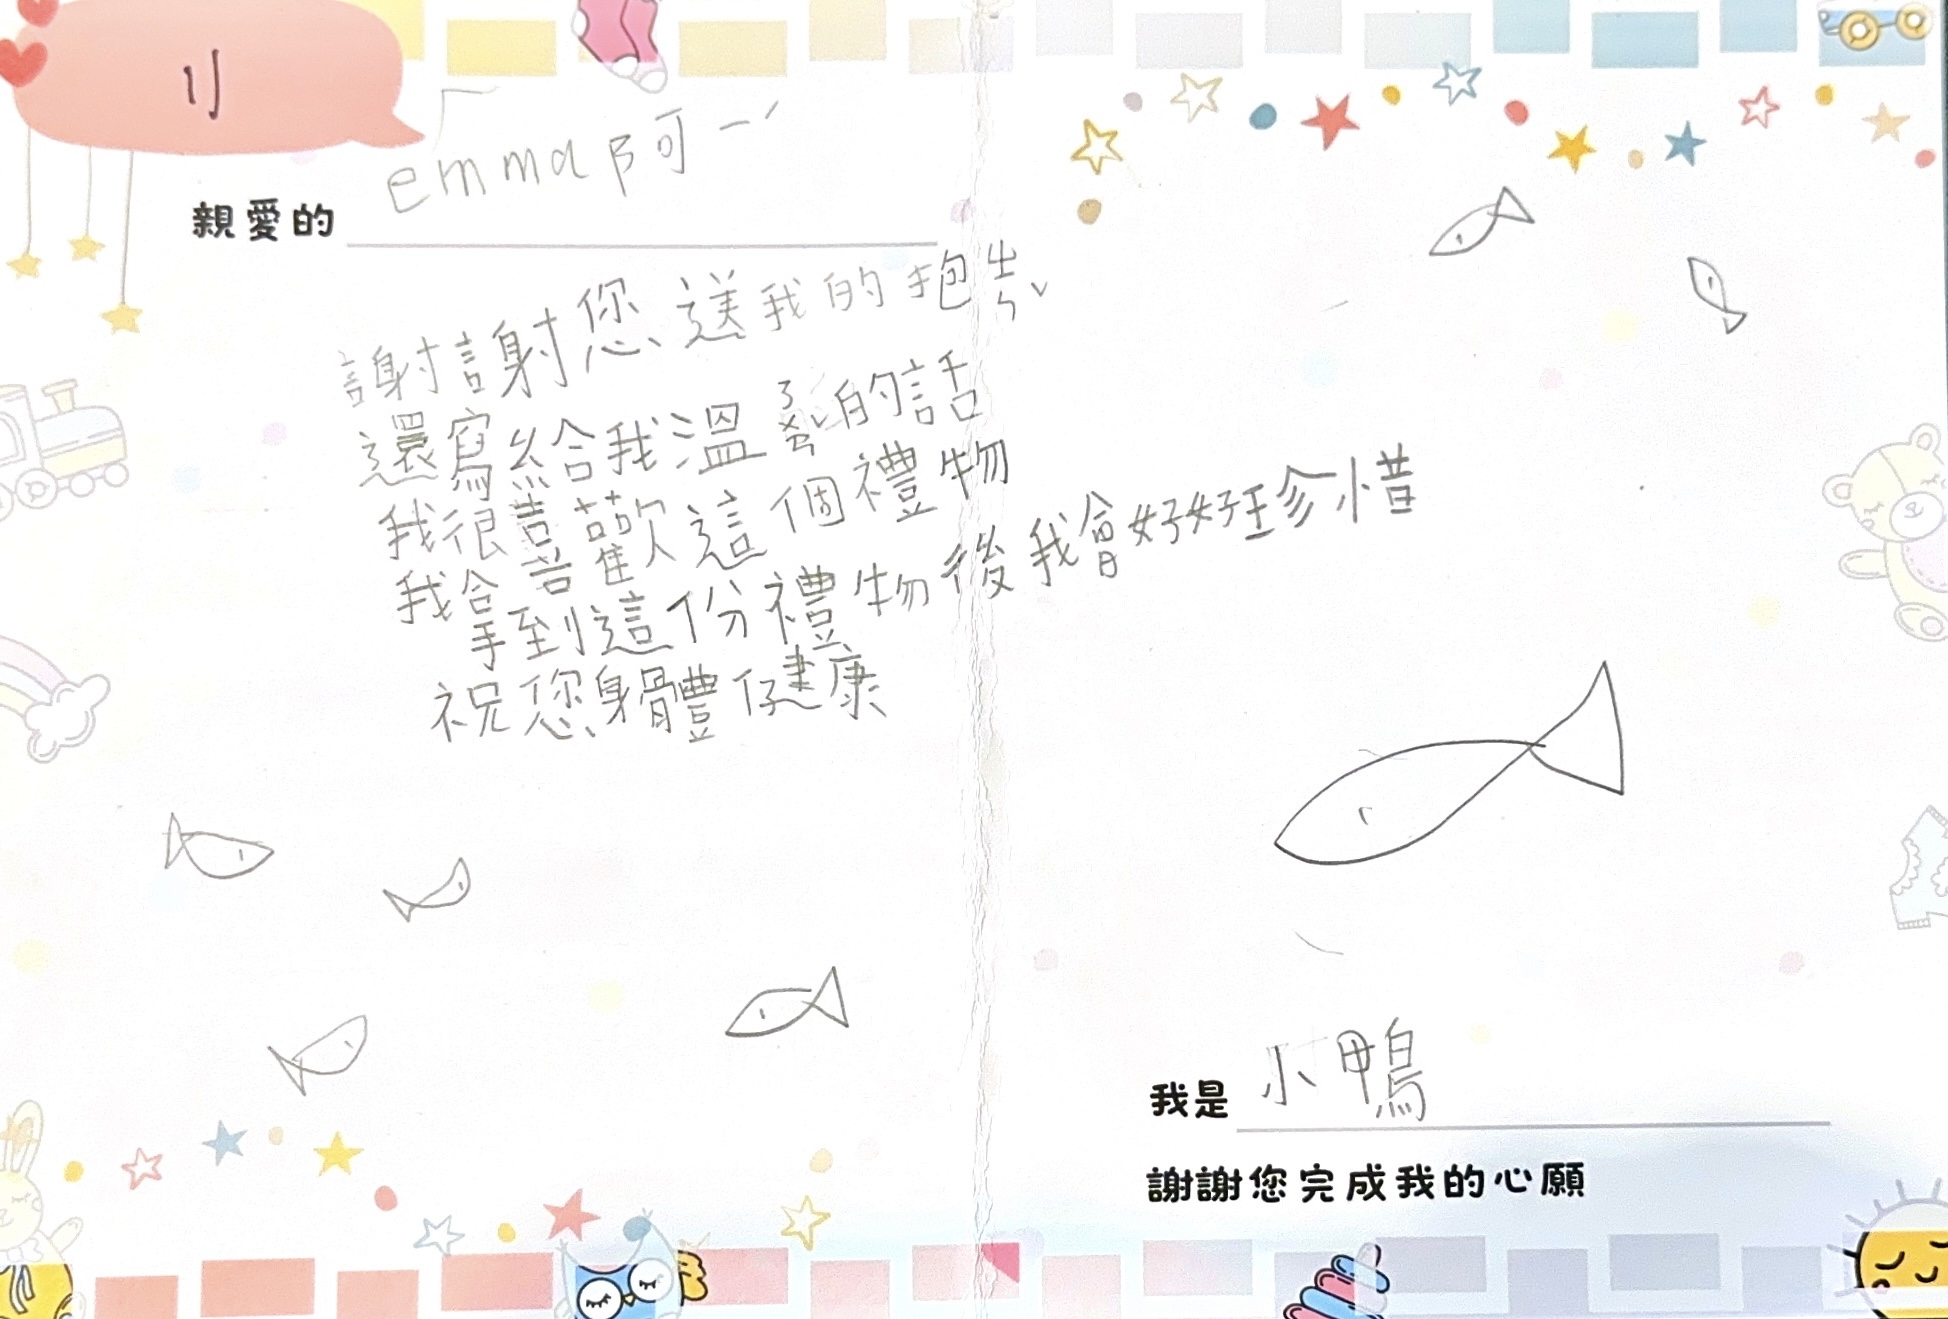 親愛的 emma阿一ˊ
謝謝您送我的抱ㄓㄣˇ
還寫給我溫ㄋㄨㄢˇ的話
我很喜歡這個禮物
我拿到這份禮物後我會好好珍惜
祝您身體健康
我是 小鴨
謝謝您完成我的心願